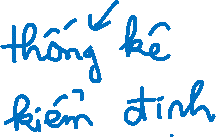 thống kê
kiểm định